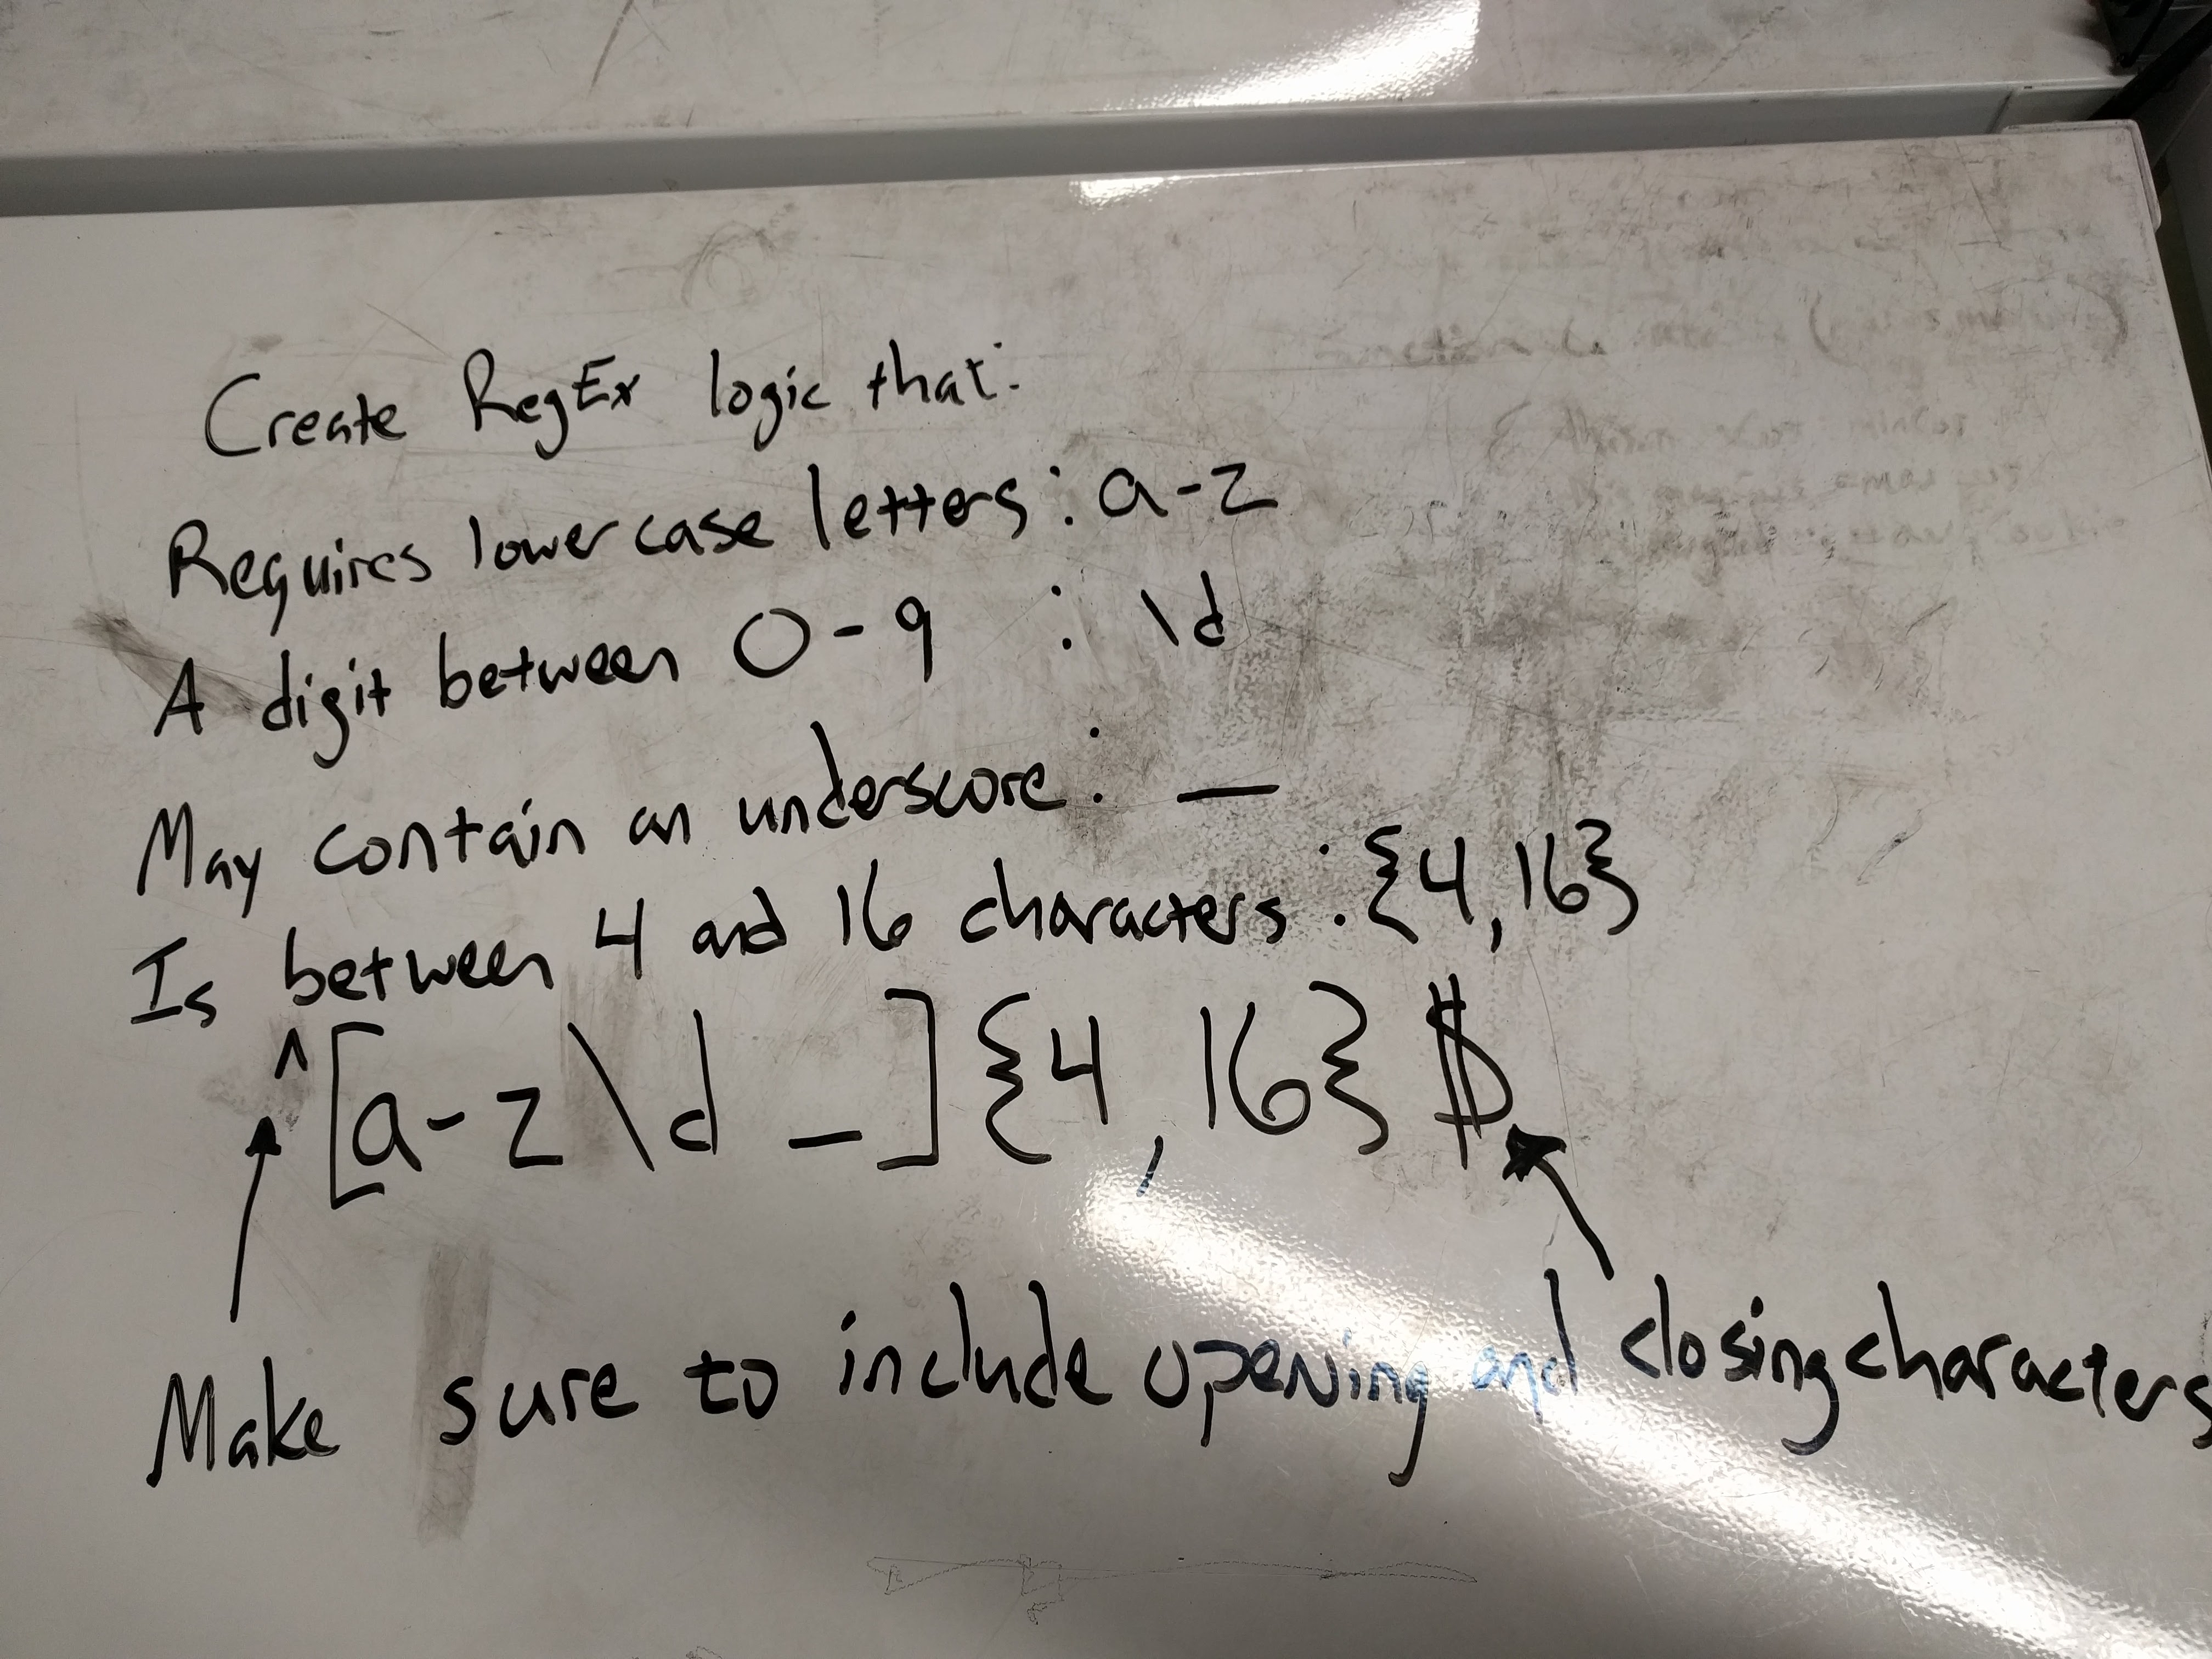 Create RegEx logic that:
Requires lower case letters: a-z
A digit between 0-9 : \d
May contain an underscore: _
Is between 4 and 16 characters: {4,16}
^[a-z\d _]{4,16}$
Make sure to include opening and closing characters